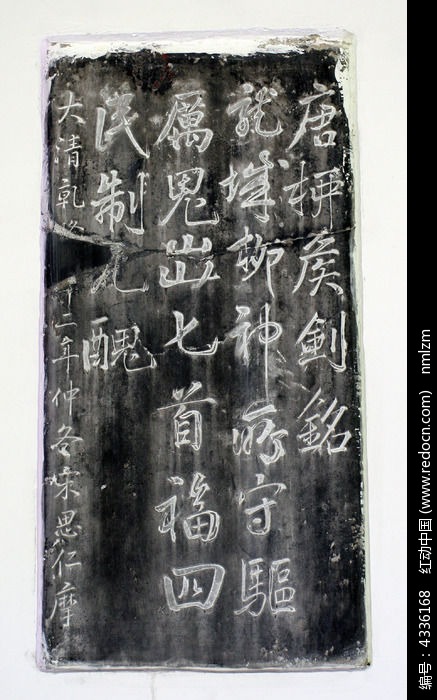 唐柳侯劍銘
龍城柳神所守驅
厲鬼出匕首福四
民制九醜
大清乾 十二年仲冬宋思仁摩
编号：4336168 红动中国 (www.redocn.com) nmlzm